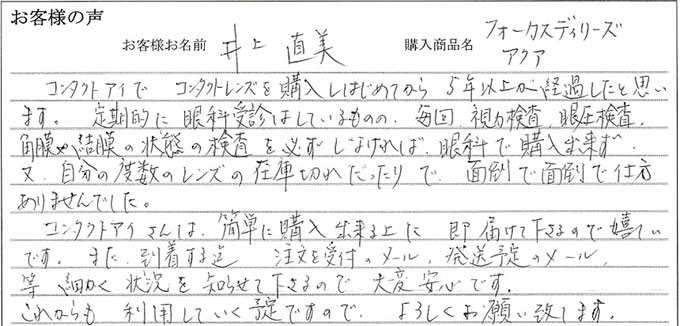 お客様の声
お客様お名前 井上 直美 購入商品名 フォーカスデイリーズ
アクア
コンタクトアイで コンタクトレンズを購入しはじめてから 5年以上が経過したと思い
ます。 定期的に 眼科受診はしているものの、毎回、視力検査、眼圧検査、
角膜や結膜の状態の検査を必ずしなければ、眼科で購入出来ず、
又、自分の度数のレンズの在庫切れだったりで、 面倒で面倒で仕方
ありませんでした。
コンタクトアイさんは、簡単に購入出来る上に 即届けて下さるので嬉しい
です。 また、到着する迄 注文を受付のメール、発送予定のメール、
等 細かく 状況を 知らせて下さるので 大変 安心です。
これからも 利用していく予定ですので、 よろしくお願い致します。